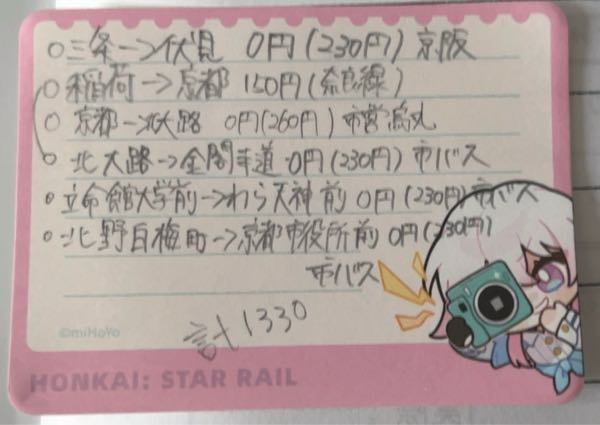 ○三条→伏見 0円(230円)京阪
○稲荷→京都 150円(奈良線)
○京都→北大路 0円(260円)市営烏丸
○北大路→金閣寺道 0円(230円)市バス
○立命館大学前→わら天神前 0円(230円)市バス
○北野白梅町→京都市役所前 0円(230円)
市バス
計1330
©miHoYo
HONKAI: STAR RAIL